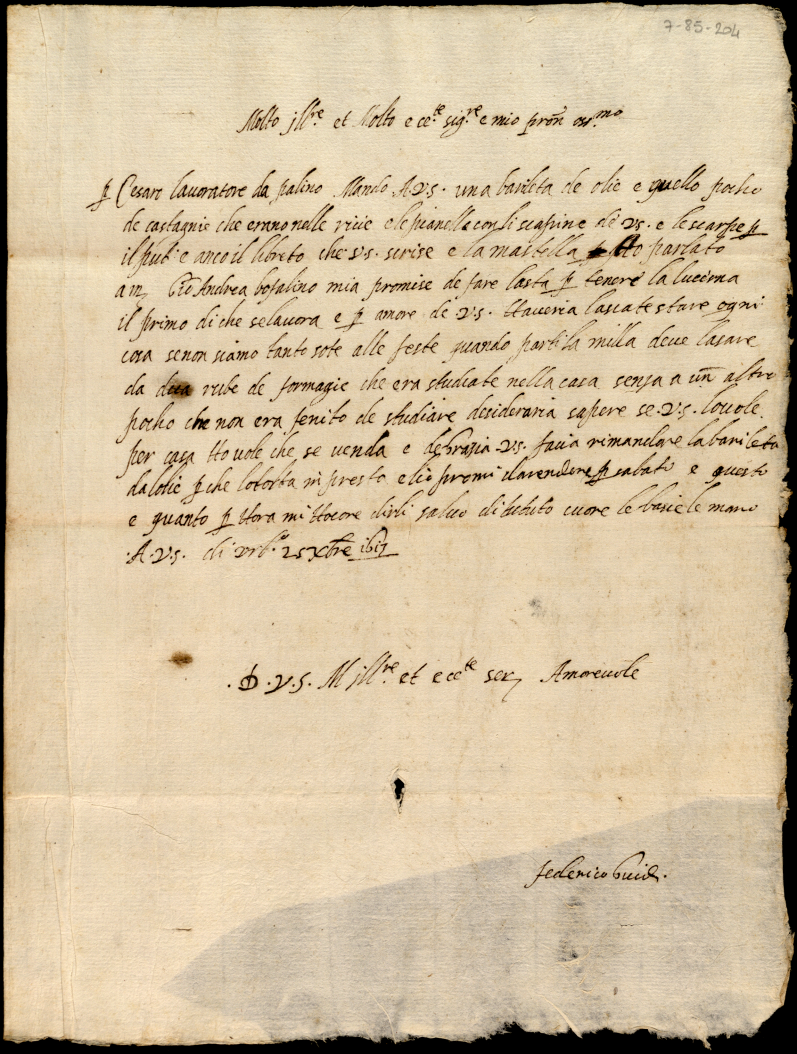 7-85-204
Molto jll.re et Molto ece.te sig.re e mio pron oss.mo
p Cesaro lavoratore da palino Mando A.V.S. una barileta de olie e quello pocho
de castagnie che erano nelle ricie e le pianelle con li scapine de VS. e le scarpe p
il put e anco il libreto che V.S. scrise e la mastella Ho parlato
a m. Gio Andrea bosalino mia promise de fare lasta p tenere la lucerna
il primo di che se lavora e p amore de V.S. Haveria lasciate stare ogni
cosa se non siamo tanto sote alle feste quando parti la milla deve lasare
da dua rube de formagie che era studiate nella casa senza a un altro
pocho che non era fenito de studiare desideraria sapere se V.S. lo vole
per casa Ho vole che se venda e de grazia V.S. facia rimandare la barileta
da lolie p che lo tolta in presto e lio promi la rendere p sabato e questo
e quanto p Hora mi Hocore dirli salvo di tututo cuore le bacie le mano
.A.V.S. di Urb.o 25 Xbre 1617
.D.V.S. M jll.re et ece.te ser. Amorevole
federico Guidi.